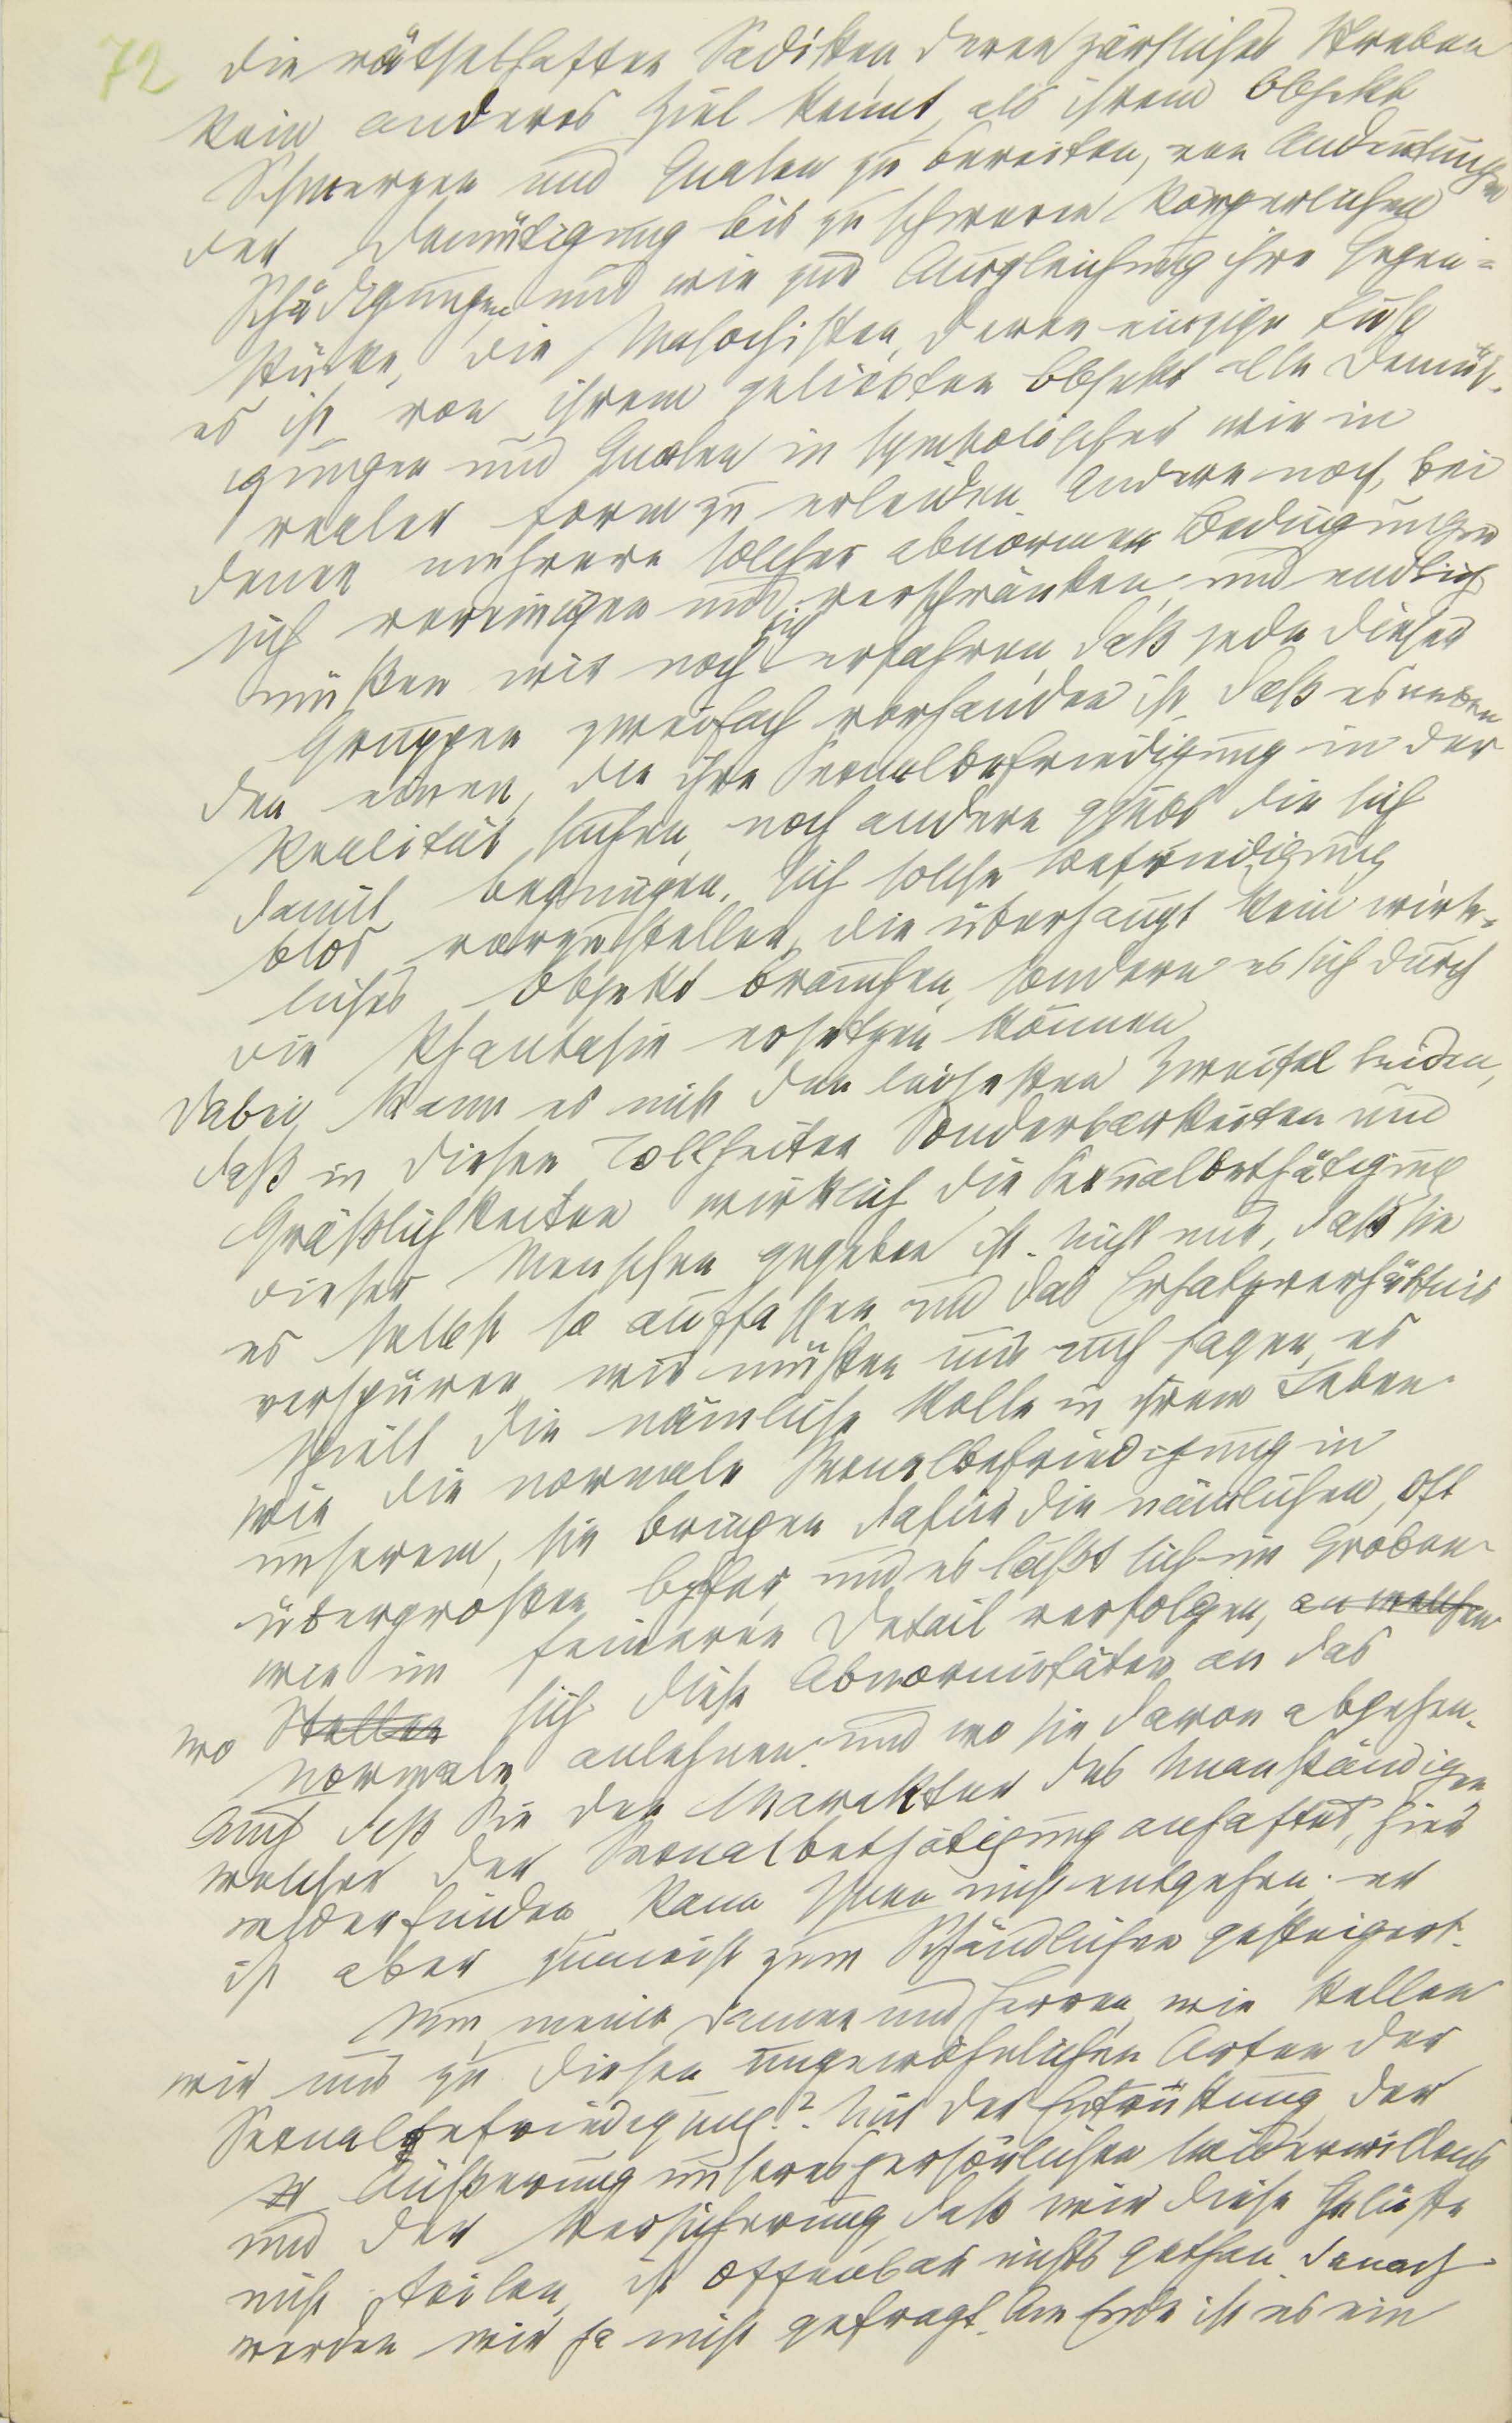 72
die rätselhaften Sadisten, deren zärtliches Streben
kein anderes Ziel kennt, als ihrem Objekt
Schmerzen und Qualen zu bereiten, von Andeutungen
der Demütigung bis zu schweren körperlichen
Schädigungen und wie zur Ausgleichung ihre Gegen=
stücke, die Masochisten, deren einzige Lust
es ist, von ihrem geliebten Objekt alle Demüti-
gungen und Qualen in symbolischer wie in
realer Form zu erleiden. Andere noch, bei
denen mehrere solcher abnormer Bedingungen
sich vereinigen und verschränken, und endlich
müßen wir noch erfahren, daß jede dieser
Gruppen zweifach vorhanden ist, daß es neben
den einen, die ihre Sexualbefriedigung in der
Realität suchen, noch andere giebt, die sich
damit begnügen, sich solche Befriedigung
blos vorzustellen, die überhaupt kein wirk=
liches Objekt brauchen, sondern es sich durch
die Phantasie ersetzen können.
Dabei kann es nicht den leisesten Zweifel leiden,
daß in diesen Tollheiten Sonderbarkeiten und
Gräßlichkeiten wirklich die Sexualbethätigung
dieser Menschen gegeben ist. Nicht nur, daß sie
es selbst so auffassen und das Ersatzverhältnis
verspüren, wir müßen uns auch sagen, es
spielt die nämliche Rolle in ihrem Leben
wie die normale Sexualbefriedigung in
unserem, sie bringen dafür die nämlichen, oft
übergroßen Opfer, und es läßt sich im Groben
wie im feineren Detail verfolgen, an welchen
wo Stellen sich diese Abnormitäten an das
Normale anlehnen und wo sie davon abgehen.
Auch daß Sie den Charakter des Unanständigen,
welcher der Sexualbethätigung anhaftet, hier
wiederfinden, kann Ihnen nicht entgehen; er
ist aber zumeist zum Schändlichen gesteigert.
Nun, meine Damen und Herren, wie stellen
wir uns zu diesen ungewöhnlichen Arten der
Sexualbefriedigung? Mit der Entrüstung, der
Äußerung unseres persönlichen Widerwillens
und der Versicherung, daß wir diese Gelüste
nicht teilen, ist offenbar nichts gethan. Danach
werden wir ja nicht gefragt. Am Ende ist es ein